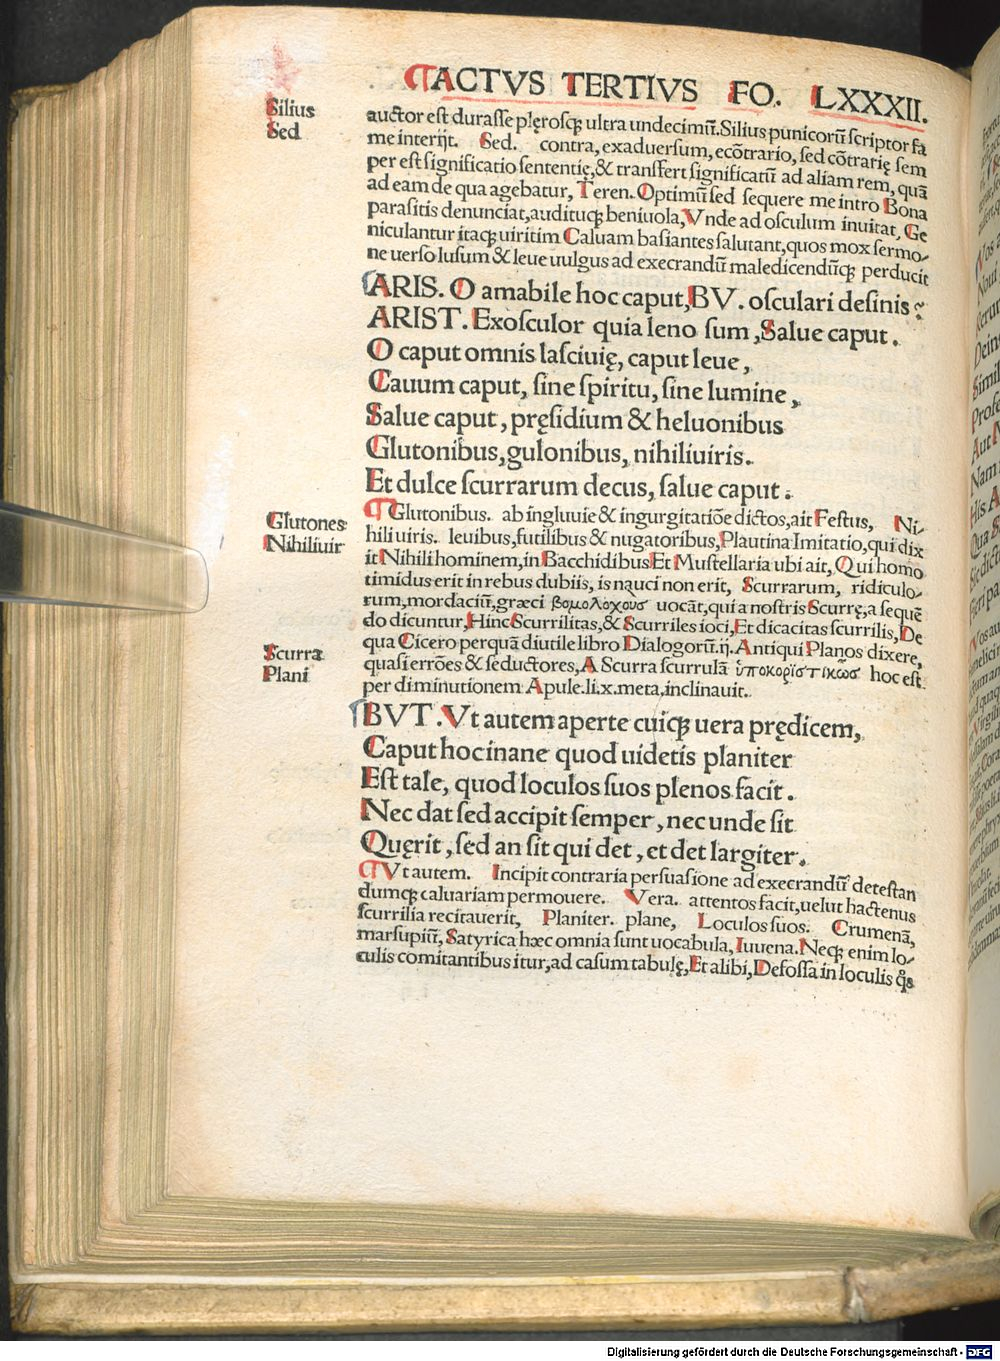 ¶ACTVS TERTIVS FO. LXXXII.
Silius
Sed
auctor est durasse plęrosq; ultra undecimū. Silius punicorū scriptor fa
me interijt. Sed. contra, exaduersum, ecōtrario, sed cōtrarię sem
per est significatio sententię, & transfert significatū ad aliam rem, quā
ad eam de qua agebatur, Teren. Optimū sed sequere me intro Bona
parasitis denunciat, audituq; beniuola, Vnde ad osculum inuitat, Ge
niculantur itaq; uiritim Caluam basiantes salutant, quos mox sermo-
ne uerso lusum & leue uulgus ad execrandū maledicendūq; perducit
ARIS. O amabile hoc caput, BV. osculari desinis?
ARIST. Exosculor quia leno sum, Salue caput.
O caput omnis lasciuię, caput leue,
Cauum caput, sine spiritu, sine lumine,
Salue caput, pręsidium & heluonibus
Glutonibus, gulonibus, nihiliuiris.
Et dulce scurrarum decus, salue caput.
Glutones
Nihiliuir
¶ Glutonibus. ab ingluuie & ingurgitatiōe dictos, ait Festus, Ni-
hiliuiris. leuibus, futilibus & nugatoribus, Plautina Imitatio, qui dix
it Nihili hominem, in Bacchidibus Et Mustellaria ubi ait, Qui homo
timidus erit in rebus dubiis, is nauci non erit, Scurrarum, ridiculo-
rum, mordaciū, græci βομολόχουσ uocāt, qui a nostris Scurrę, a sequē
do dicuntur, Hinc Scurrilitas, & Scurriles ioci, Et dicacitas scurrilis, De
qua Cicero perquā diutile libro Dialogorū. ij. Antiqui Planos dixere,
Scurra
Plani
quasi errōes & seductores, A Scurra scurrulā ὑποκορϊστικῶσ hoc est.
per diminutionem Apule. li. x. meta, inclinauit.
BVT. Vt autem aperte cuiq; uera prędicem,
Caput hoc inane quod uidetis planiter
Est tale, quod loculos suos plenos facit.
Nec dat sed accipit semper, nec unde sit
Quęrit, sed an sit qui det, et det largiter.
¶Vt autem. Incipit contraria persuasione ad execrandū detestan
dumq; caluariam permouere. Vera. attentos facit, uelut hactenus
scurrilia recitauerit, Planiter. plane, Loculos suos. Crumenā,
marsupiū, Satyrica hæc omnia sunt uocabula, Iuuena. Neq; enim lo-
culis comitantibus itur, ad casum tabulę, Et alibi, Defossa in loculis q̊s
Digitalisierung gefördert durch die Deutsche Forschungsgemeinschaft - DFG